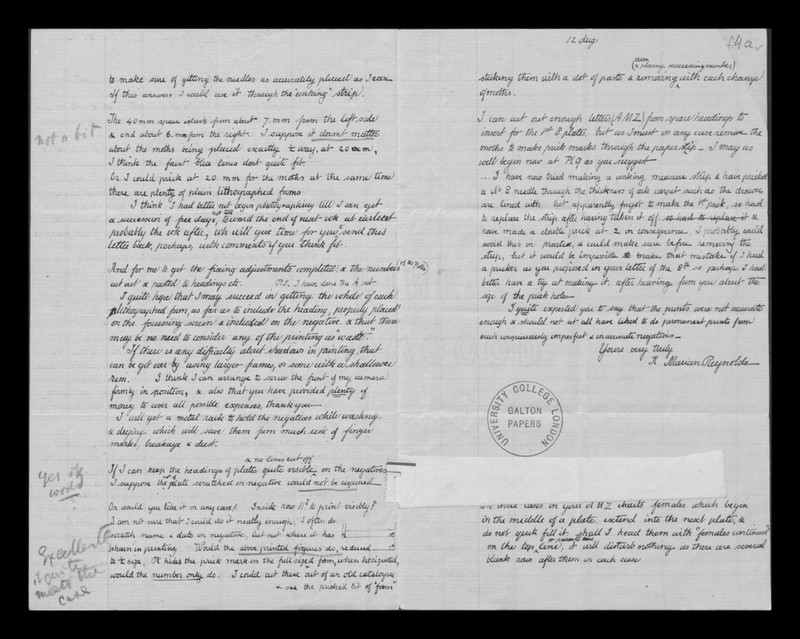 to make sure of getting the needles as accurately placed as I can
If this answers I could use it through the "inking" strip.
The 40 mm space starts from about 7. mm from the left side
& end about 6. mm from the right. I suppose it doesn't matter
about the moths being placed exactly ½ way, at 20 mm,
I think the faint blue lines dont quite fit.
Or I could prick at 20 mm for the moths at the same time
there are plenty of plain lithographed forms
I think I had better not begin photographing till I can get
a succession of free days, not till toward the end of next wk at earliest
probably the wk after, wh will give time for you to send this
letter back, perhaps, with comments if you think fit.
And for me to get the fixing adjustments completed, & the numbers (of the Plates)
cut out & pasted to headings etc. P.S. I have done the A set
I quite hope that I may succeed in getting the whole of each
lithographed form, as far as to include the heading, properly placed
on the focussing screen & included on the negative. & that there
may be no need to consider any of the printing as "waste".
If there is any difficulty about shadows in printing, that
can be got over by using larger frames, or some with a shallower
rim. I think I can arrange to screw the front of my camera
firmly in position, & also that you have provided plenty of
money to cover all possible expenses, thank you
I will get a metal rack to hold the negatives while washing
& drying which will save them from much risk of finger
marks, breakage & dust.
& no lines cut off
If I can keep the headings of plates quite visible on the negatives
I suppose the no. of plate scratched in negative would not be required
Or would you like it in any case? Inside row No. to print visibly?
I am not sure that I could do it neatly enough, I often do
scratch name & date on negative, but not where it has
shown in printing. Would the above printed figures do, reduced
to ½ size, It hides the prick mark in the full sized form, when horizontal,
would the number only do. I could cut these out of an old catalogue
& see the pricked bit of "form"
not a bit
yes it would
Excellent
it quite
meets the
case
12 Aug
f.4a
sticking them with a dot of paste & removing them (& placing succeeding number) with each change
of moths.
I can cut out enough letters (A M Z) from spare headings to
insert for the 1st 8 plates, but as I must in any case remove the
moths to make prick marks through the paper slip I may as
well begin now at Pl 9 as you suggest
I have now tried making a working measure strip & have pricked
a No 8 needle through the thickness of cork carpet such as the drawers
are lined with but apparently forgot to make the 1st prick, so had
to replace the strip after having taken it off so had to replace it &
have made a double prick at 2 in consequence. I probably could
avoid this in practice, & could make sure before removing the
strip, but it would be impossible to make that mistake if I had
a pricker as you proposed in your letter of the 8th so perhaps I had
better have a try at making it. after hearing from you about the
size of the prick holes
I quite expected you to say that the prints were not accurate
enough & should not at all have liked to do permanent prints from
such conspicuously imperfect & inaccurate negatives
Yours very truly
K Marian Reynolds
UNIVERSITY COLLEGE LONDON
GALTON
PAPERS
in the middle of a plate. extend into the next plate, &
do not quite fill it, shall I head them with "females continued"
on the top line, it will disturb nothing as there are several
blank rows after them in each case